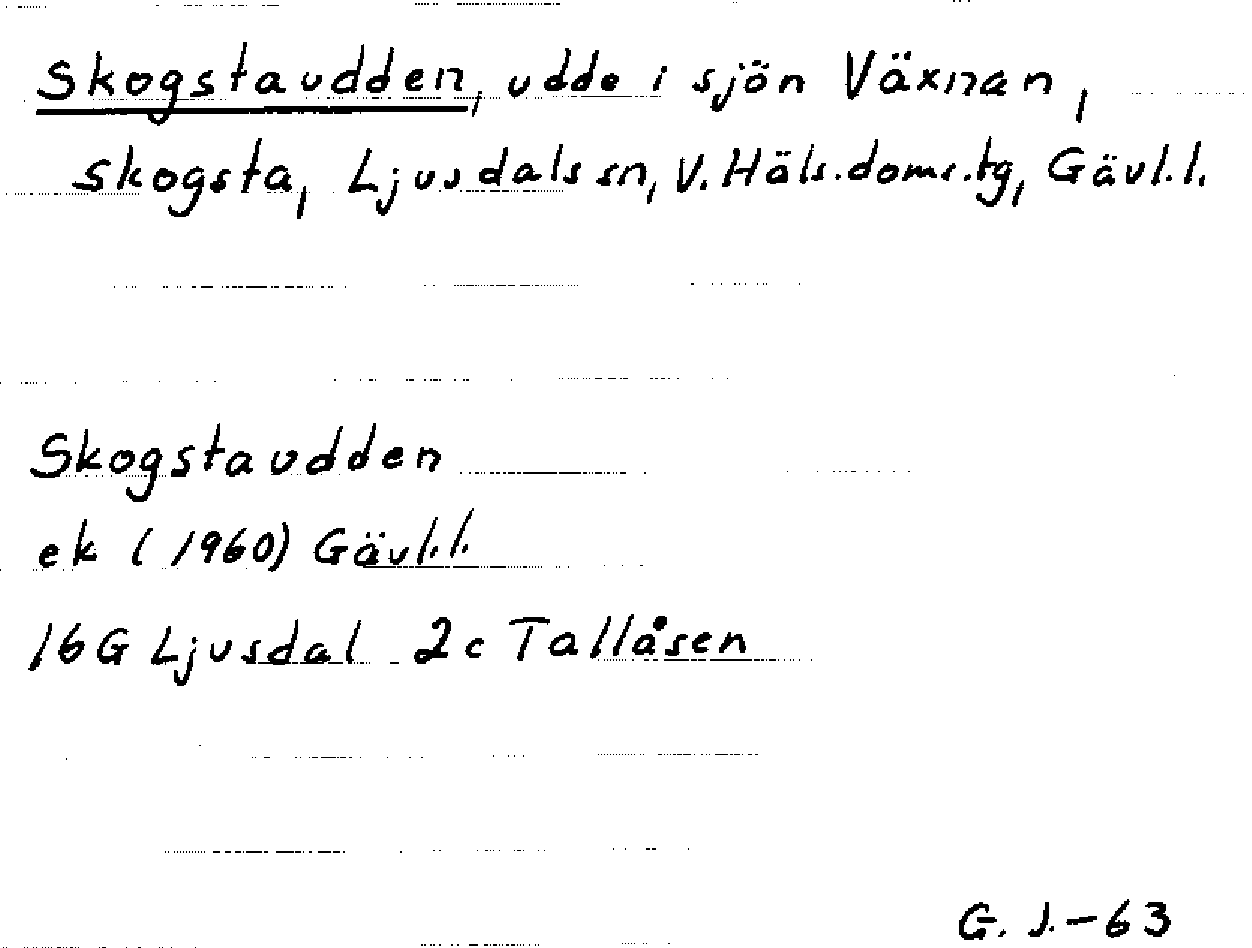 Skogstaudden, udde i sjön Växnan,
Skogsta, Ljusdals sn, V. Häls. doms. tg, Gävl. l.
Skogstaudden
ek (1960) Gävl. l.
16G Ljusdal 2c Tallåsen
G. J. -63